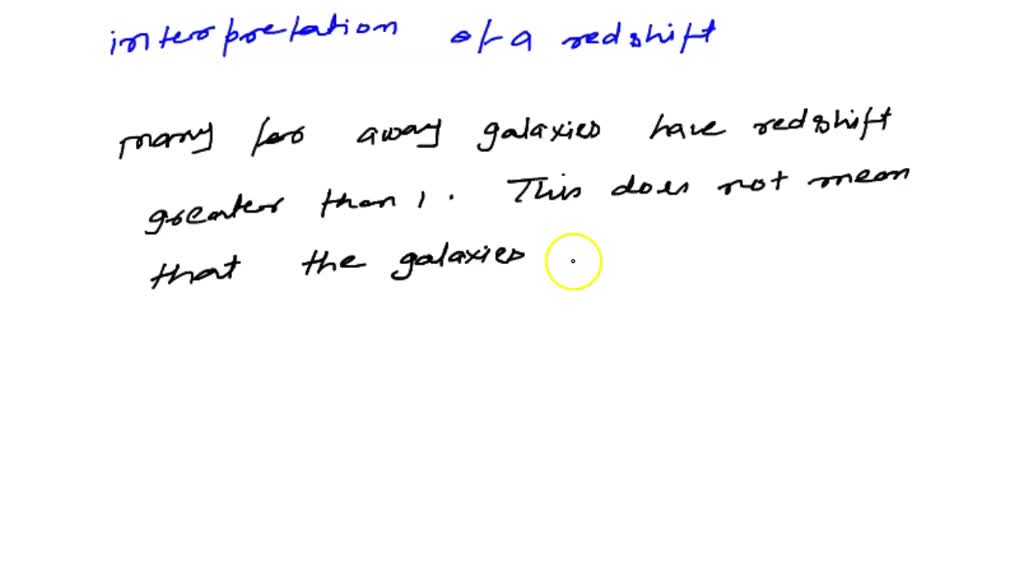 interpretation of a redshift
many far away galaxies have redshift
greater than 1. This does not mean
that the galaxies